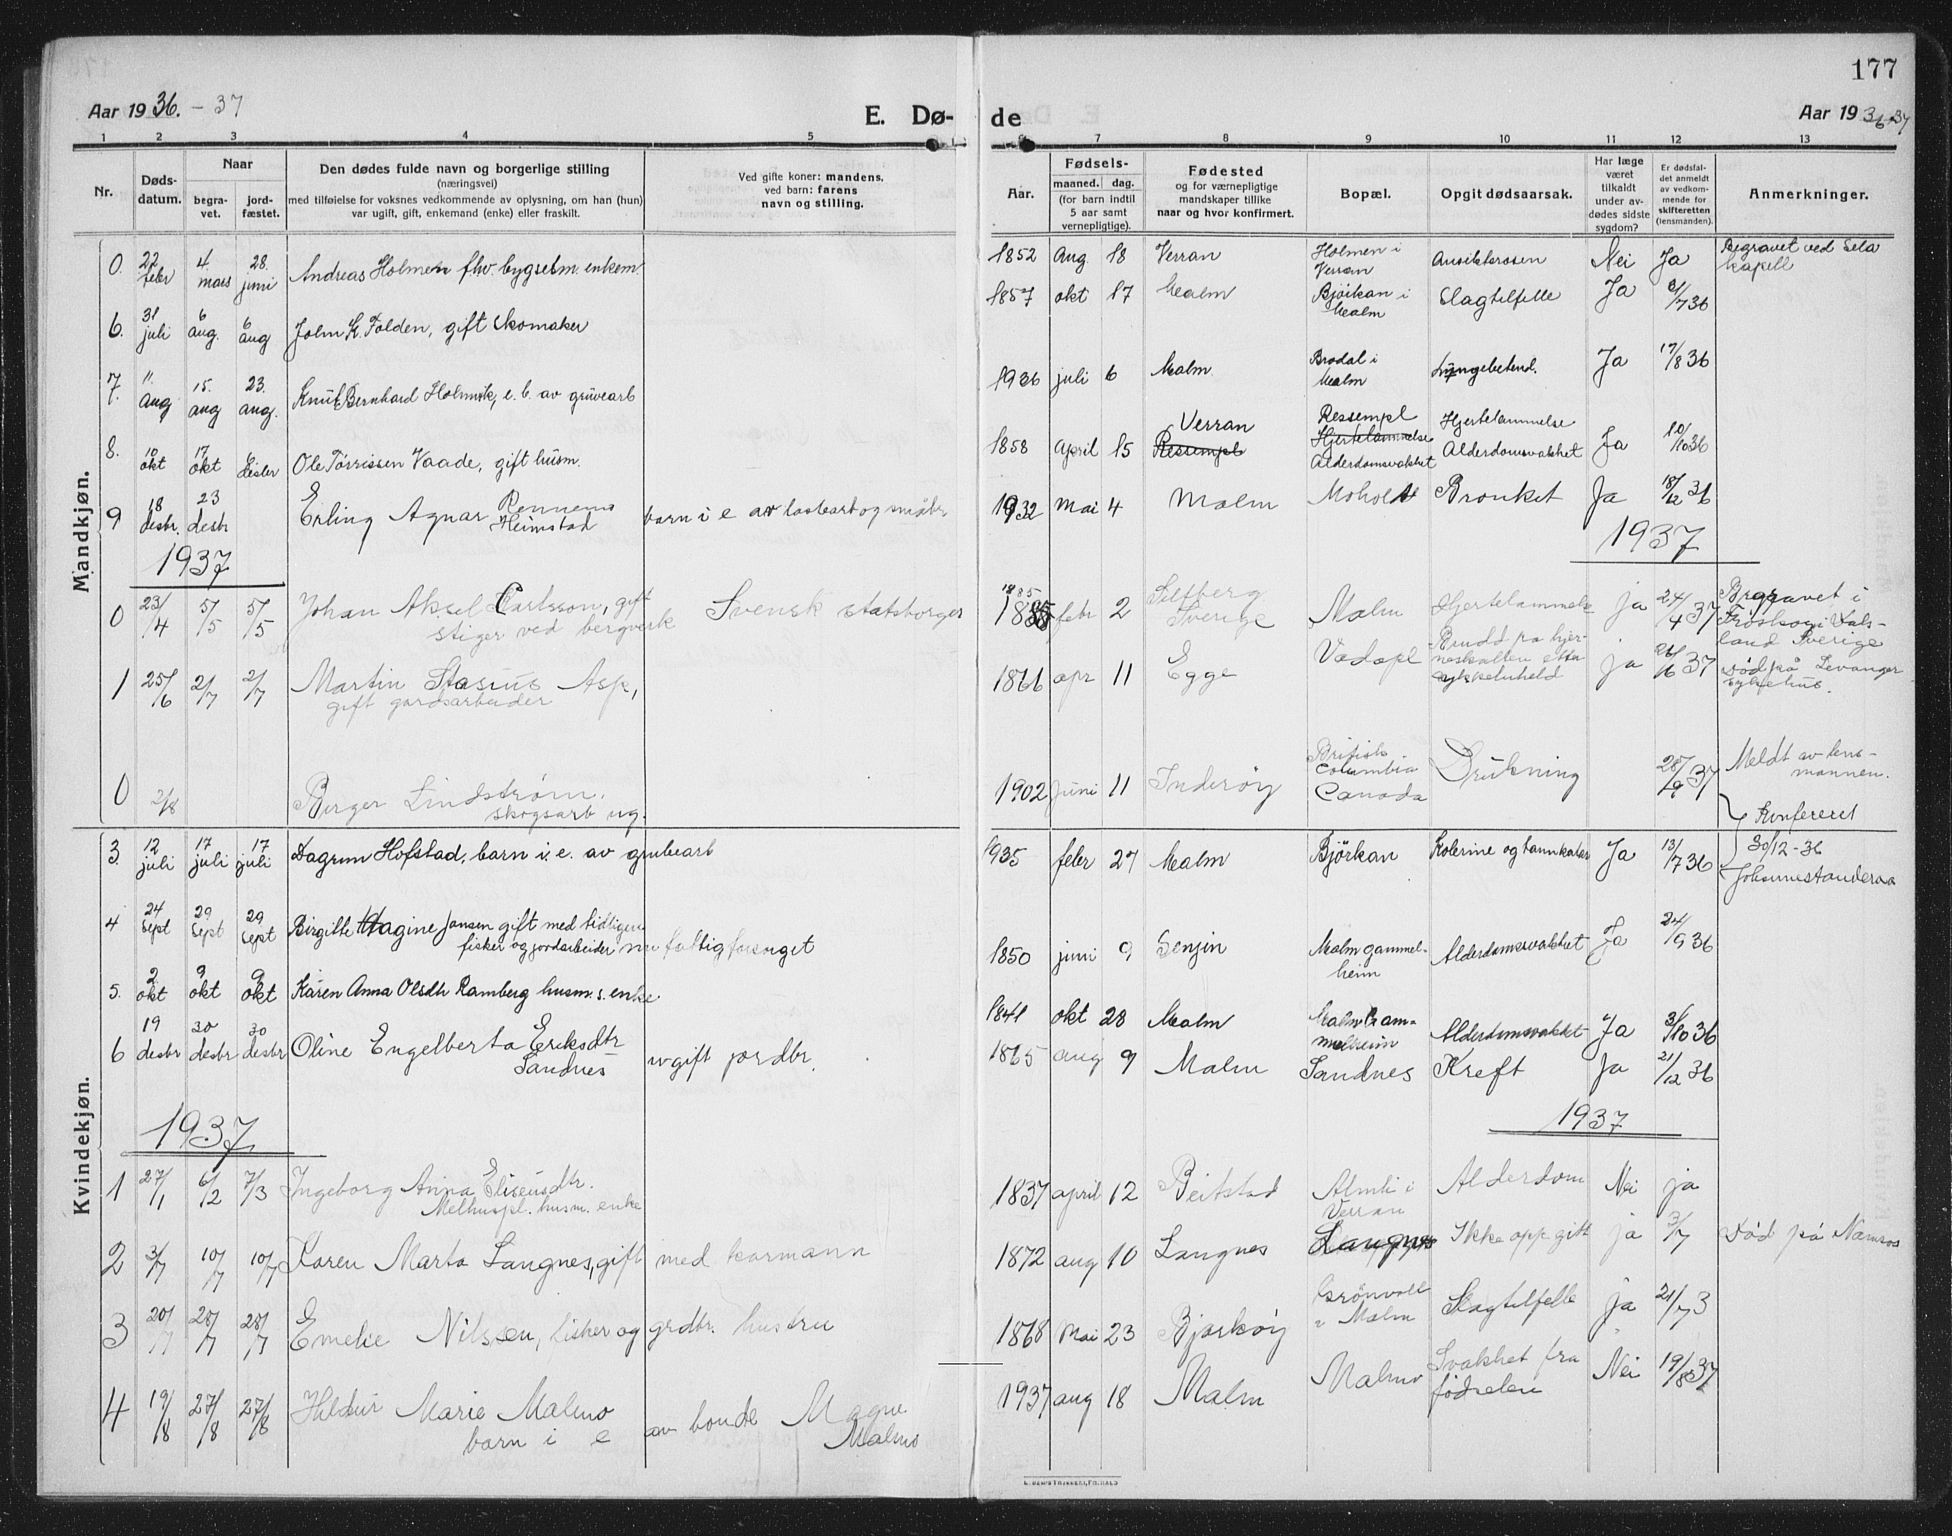 177
Aar 1936. - 37
E. Dø-
de
Aar 1936-37
1 2 3 4 5 6 7 8 9 10 11 12 13
Nr.
Døds-
datum.
Naar
begra-
vet.
jord-
fæstet.
Den dødes fulde navn og borgerlige stilling
(næringsvei)
med tilføielse for voksnes vedkommende av oplysning, om han (hun)
var ugift, gift, enkemand (enke) eller fraskilt.
Ved gifte koner: mandens,
ved barn: farens
navn og stilling.
Aar.
Fødsels-
maaned. dag.
(for barn indtil
5 aar samt
vernepligtige).
Fødested
og for værnepligtige
mandskaper tillike
naar og hvor konfirmert.
Bopæl.
Opgit dødsaarsak.
Har læge
været
tilkaldt
under av-
dødes sidste
sygdom?
Er dødsfal-
det anmeldt
av vedkom-
mende for
skifteretten
(lensmanden).
Anmerkninger.
Mandkjøn.
0. 22 febr 4. mars 28. juni Andreas Holmen fhv. bygselm. enkem. 1852 Aug 18 Verran Holmen i Verran Ansiktsrosen Nei Ja Begravet ved Sela kapell
6. 31 juli 6 aug. 6 aug John K. Folden, gift skomaker 1857 okt 17 Malm Bjørkan i Malm Slagtilfelle Ja /7 36
7. 11. aug 15. aug 23. aug. Knut Bernhard Holmvik, e. b. av gruvearb 1936 juli 6 Malm Brodal i Malm Lungebetend. Ja 17/8 36
8. 10 okt 17 okt 6 desbr Ole Tørrissen Vaade, gift husm. 1858 april 15 Verran Ressempl Ressempl Hjertelammelse Alderdomsvakhet Hjertelammelse Alderdomsvakhet Ja 10/10 36
9 18 desbr. 23 desbr Erling Agnar Rennems Heimstad barn i e av lastearb og småbr. 1932 mai 4 Malm Moholdt Bronkit Ja 18/12 36
1937
1937
0 23/4 5/5 5/5 Johan Aksel Carlsson, gift stiger ved bergverk Svensk statsborger 1885 1885 febr 2 Sverige Malm Hjertelammelse ja 24/4 37 Begravet i Dals-land Sverige
1 25/6 2/7 2/7 Martin Stasius Asp, gift gardsarbeider 1866 apr 11 Egge Vadapl Brudd på hjerneskallen etter sykkeluheld ja 26/6 37 Død på Levanger sykehus.
0 2/8 Birger Lindstrøm. skogsarb ug. 1902 juni 11 Inderøy British Columbia Canada Drukning 28/9 37 Meldt av lens-mannen.
Konfereret
30/12-36
Kvindekjøn.
3. 12 juli 17 juli 17 juli Dagrun Hofstad, barn i. e. av grubearb 1935 febr 27 Malm Bjørkan Kolerine og tarmkatar Ja 13/7 36
4 24 sept 29 sept 29 sept Birgitte Hagine Jansen gift med tidligere fisker og jordarbeider nu fattigforsørget 1850 juni 9 Senjin Malm gammel-heim Alderdomsvakhet Ja 24/9 36
5. 2. okt 9 okt 9 okt Karen Anna Olsdtr Ramberg husm. s. enke 1841 okt 28 Malm Malm Gam-melheim Alderdomsvakhet Ja 3/10 36
6 19 desbr 30 desbr 30 desbr Oline Engelberta Eriksdtr Sandnes ugift jordbr. 1865 aug 9 Malm Sandnes Kreft Ja 21/12 36
1937
1937
1 27/1 6/2 7/3 Ingeborg Anna Eliseusdtr. Melhuspl. husm. enke 1837 april 12 Beitstad Almli i Verran Alderdom Nei ja
2 3/7 10/7 10/7 Karen Marta Langnes, gift med karmann 1872 aug 10 Langnes Langnes Ikke oppgitt ja 3/7 Død på Namsos
3 20/7 28/7 28/7 Emelie Nilssen, fisker og grdbr. hustru 1868 mai 23 Bjarkøy Grønvoll i Malm Slagtilfelle ja 21/7 3
4 19/8 27/8 27/8 Hildur Marie Malmo barn i e av bonde Magne Malmo 1937 aug 18 Malm Malmo Svakhet fra fødselen Nei 19/8 37